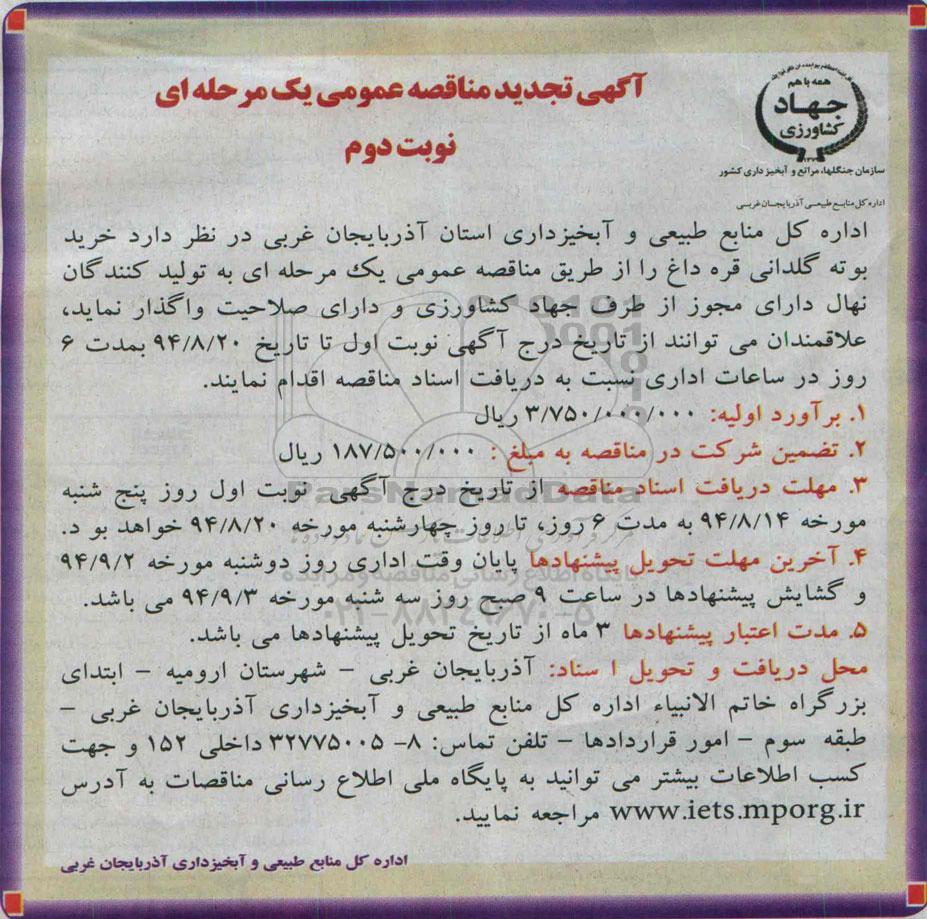 آگهی تجدید مناقصه عمومی یک مرحله ای
نوبت دوم
همه با هم
جهاد
کشاورزی
سازمان جنگلها، مراتع و آبخیزداری کشور
اداره کل منابع طبیعی آذربایجان غربی
اداره کل منابع طبیعی و آبخیزداری استان آذربایجان غربی در نظر دارد خرید
بوته گلدانی قره داغ را از طریق مناقصه عمومی یک مرحله ای به تولید کنندگان
نهال دارای مجوز از طرف جهاد کشاورزی و دارای صلاحیت واگذار نماید،
علاقمندان می توانند از تاریخ درج آگهی نوبت اول تا تاریخ ۹۴/۸/۲۰ بمدت ۶
روز در ساعات اداری نسبت به دریافت اسناد مناقصه اقدام نمایند.
۱. برآورد اولیه: ۳/۷۵۰/۰۰۰/۰۰۰ ریال
۲. تضمین شرکت در مناقصه به مبلغ : ۱۸۷/۵۰۰/۰۰۰ ریال
۳. مهلت دریافت اسناد مناقصه از تاریخ درج آگهی نوبت اول روز پنج شنبه
مورخه ۹۴/۸/۱۴ به مدت ۶ روز، تا روز چهارشنبه مورخه ۹۴/۸/۲۰ خواهد بو د.
۴. آخرین مهلت تحویل پیشنهادها پایان وقت اداری روز دوشنبه مورخه ۹۴/۹/۲
و گشایش پیشنهادها در ساعت ۹ صبح روز سه شنبه مورخه ۹۴/۹/۳ می باشد.
۵. مدت اعتبار پیشنهادها ۳ ماه از تاریخ تحویل پیشنهادها می باشد.
محل دریافت و تحویل ا سناد: آذربایجان غربی – شهرستان ارومیه – ابتدای
بزرگراه خاتم الانبیاء اداره کل منابع طبیعی و آبخیزداری آذربایجان غربی –
طبقه سوم – امور قراردادها – تلفن تماس: ۸- ۳۲۷۷۵۰۰۵ داخلی ۱۵۲ و جهت
کسب اطلاعات بیشتر می توانید به پایگاه ملی اطلاع رسانی مناقصات به آدرس
www.iets.mporg.ir مراجعه نمایید.
اداره کل منابع طبیعی و آبخیزداری آذربایجان غربی
ParsNamadData
پایگاه اطلاع رسانی مناقصه و مزایده
۰۲۱-۸۸۳۴۹۶۷۰-۵